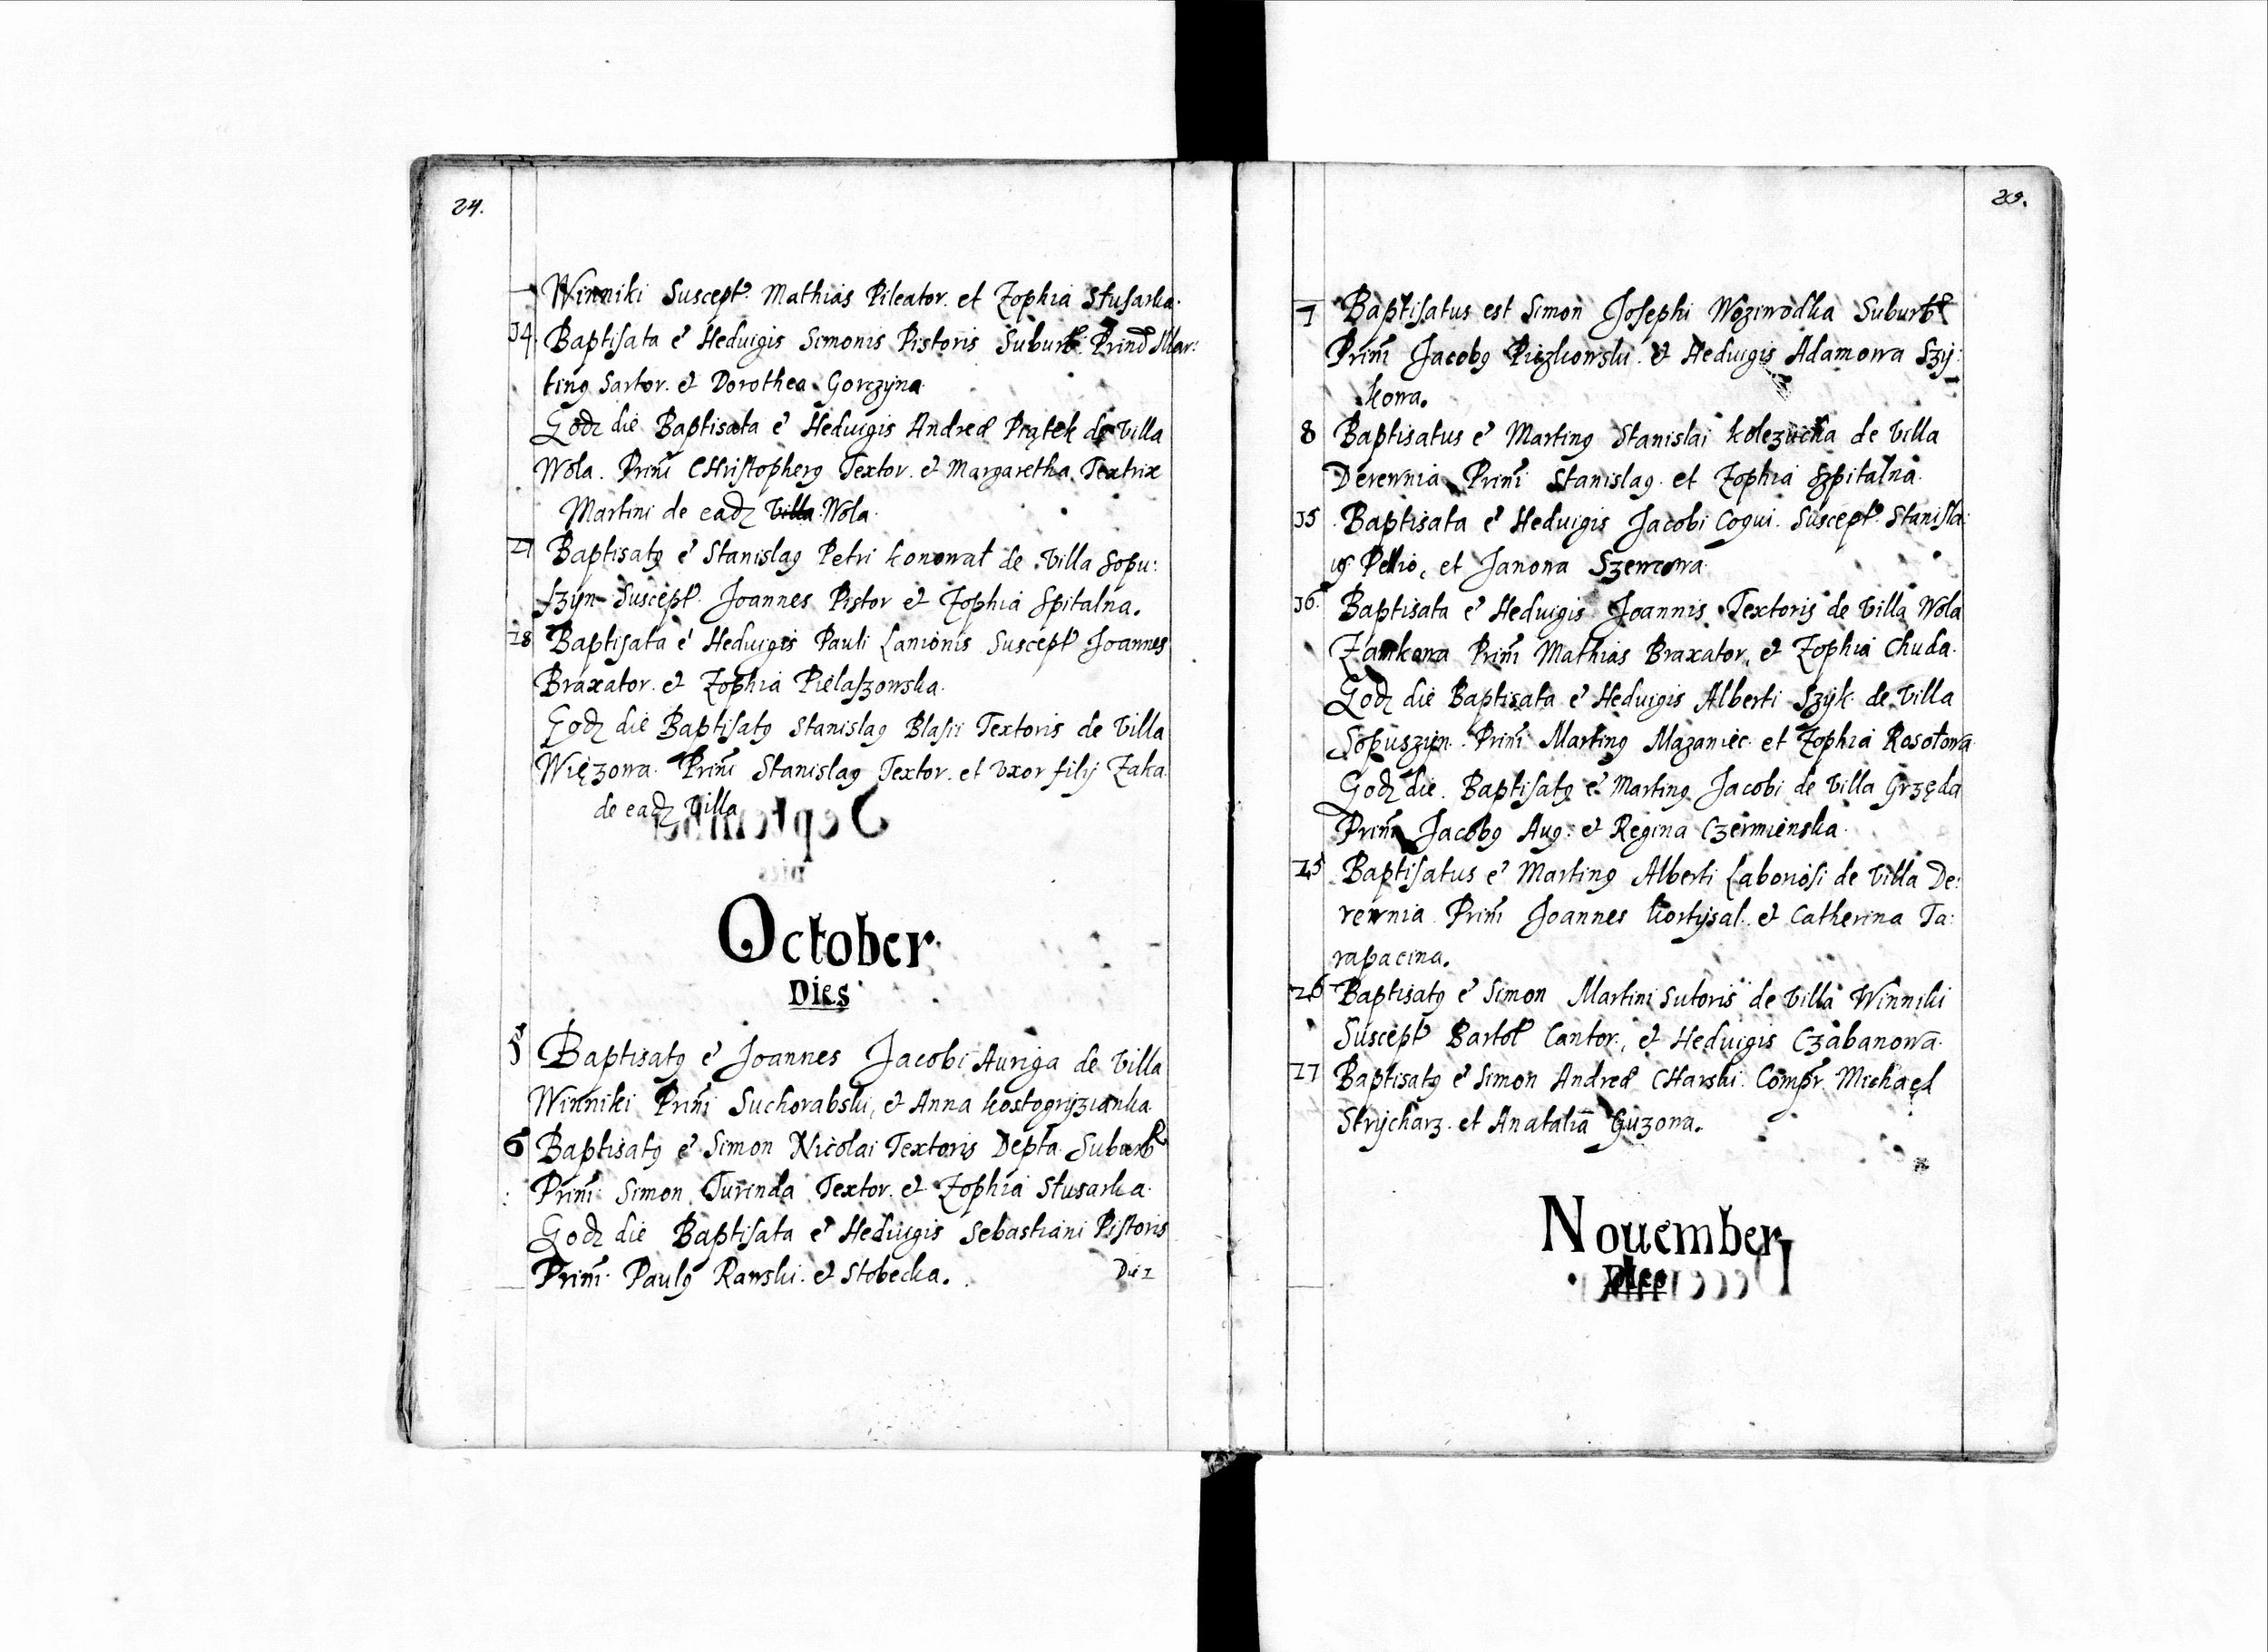 24.
Winniki Suscept. Mathias Pileator. et Zophia Slusarka.
14. Baptisata e Hedvigis Simonis Pistoris Suburb. Prin Mar:
ting Sartor. et Dorothea Gorczyna
Eodz die Baptisata e Hedvigis Andreæ Piątek de Villa
Wola. Prim CHristopherg Textor. et Margaretha Textrix
Martini de eadz Wola.
21 Baptisatg e Stanislag Petri konował de Villa Sopu:
szyn Suscept. Joannes Pistor et Zophia Spitalna.
28 Baptisata e Hedvigis Pauli Lanionis Suscept Joannes
Braxator. et Zophia Pielaszowska.
Eodz die Baptisatg Stanislag Blasii Textoris de Villa
Więzowa. Prim Stanislag Textor. et Vxor filij Zaka
de eadz Villa
October
Dies
5 Baptisatg e Joannes Jacobi Auriga de Villa
Winniki Prim Suchorabski, et Anna kostogryzianka.
6 Baptisatg e Simon Nicolai Textoris Depta Suburb
Prim Simon Turinda Textor. et Zophia Slusarka.
Eodz die Baptisata e Hedvigis Sebastiani Pistoris
Prim Paulg Rawski. et Stobecka.
Die 7
25.
7 Baptisatus est Simon Josephi Woziwodka Suburb
Prim Jacobg Piczkowski. et Hedvigis Adamowa Szy:
kowa.
8 Baptisatus e Marting Stanislai kolezucha de Villa
Derewnia Prim Stanislag. et Zophia Szpitalna.
15 Baptisata e Hedvigis Jacobi Coqui. Suscept. Stanisla:
us Pellio, et Janowa Szewcowa
16. Baptisata e Hedvigis Joannis Textoris de Villa Wola
Zamkowa Prim Mathias Braxator, et Zophia Chuda.
Eodz die Baptisata e Hedvigis Alberti Szyk de Villa
Sopuszyn. Prim Marting Mazaniec et Zophia Rosołowa
Eodz die. Baptisatg e Marting Jacobi de Villa Grzęda
Prim Jacobg Aug: et Regina Czermienska.
25 Baptisatus e Marting Alberti Laboriosi de Villa De:
rewnia Prim Joannes kortysal. et Catherina Ta:
rapacina.
26 Baptisatg e Simon Martini Sutoris de Villa Winniki
Suscept Bartol Cantor, et Hedvigis Czabanowa.
27 Baptisatg e Simon Andreæ CHarski. Compr. Michael
Strycharz. et Anatalia Guzowa.
Nouember
Dies